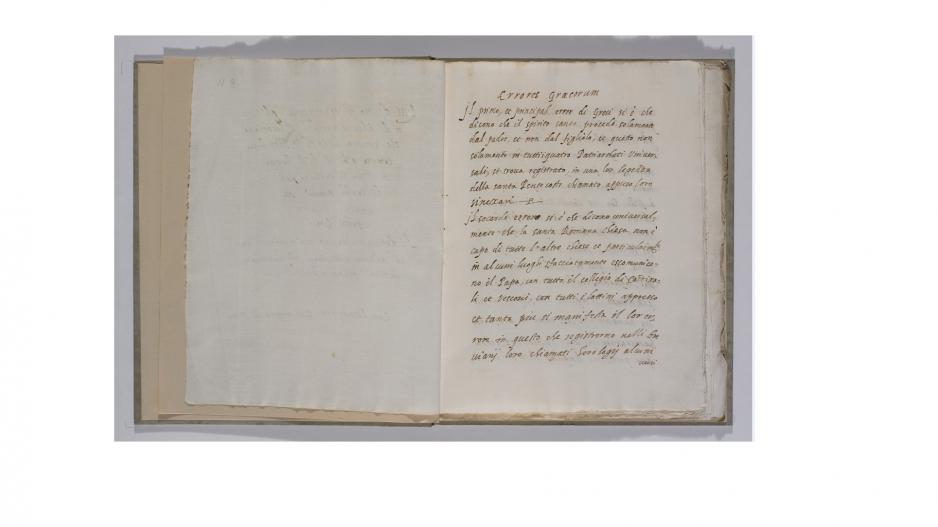 Errores Græcorum
Il primo, et principal error di Greci si è che
dicono che il spirito santo procede solamente
dal padre, et non dal figliolo, et questo non
solamente in tutti quatro Patriarchati Univer
sali, si trova registrato, in una lor
della santa Pentecoste chiamato, appresso loro
il secondo errore si è che dicono universal,
mente che la santa Romana chiesa non è
capo di tutte l'altre chiese et
in alcuni luoghi sfacciatamente escomunica
no il Papa, con tutto il collegio di Cardina,
li et Vescovi, con tutti i lattini appresso
et tanto più si manifesta il lor er,
rore in questo che registrorno nelli
loro chiamati horologij alcuni